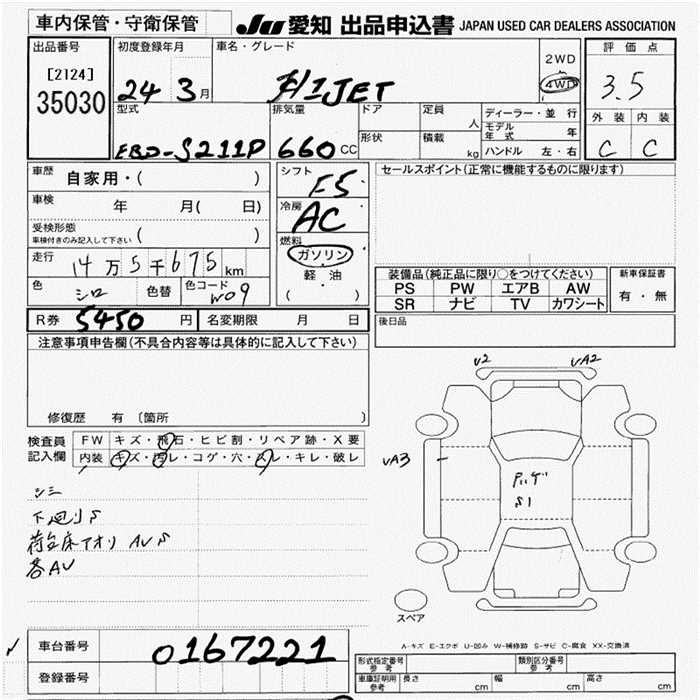 車内保管・守衛保管
JU 愛知 出品申込書 JAPAN USED CAR DEALERS ASSOCIATION
出品番号
[2124]
35030
初度登録年月
24 3月
車名・グレード
ハイJET
2WD
4WD
評価点
3.5
外装 内装
C C
型式
EBD-S211P
排気量
660 CC
ドア
形状
定員
人
積載
kg
ディーラー・並行
モデル年式 年
ハンドル 左・右
車歴
自家用・( )
車検
年 月( 日)
受検形態
車検付きのみ記入して下さい ( )
走行
14万5千675km
色
シロ
色替
色コード
W09
シフト
F5
冷房
AC
燃料
ガソリン
軽・油
( )
セールスポイント(正常に機能するものに限ります)
装備品(純正品に限り○をつけてください)
PS PW エアB AW
SR ナビ TV カワシート
新車保証書
有・無
後日品
R券 5450円
名変期限 月 日
注意事項申告欄(不具合内容等は具体的に記入して下さい)
修復歴 有 〔箇所 〕
検査員記入欄
FW キズ・飛石・ヒビ割・リペア跡・X要
内装 キズ・汚レ・コゲ・穴・スレ・キレ・破レ
シミ
下廻りS
荷台床アオリ AVS
各AV
V2
VA2
VA3
パゲ
S1
スペア
A-キズ E-エクボ U-凹み W-補修跡 S-サビ C-腐食 XX-交換済
車台番号
0167221
登録番号
形式指定番号
参考
類別区分番号
参考
車庫証明用
参考
長さ cm
幅 cm
高さ cm